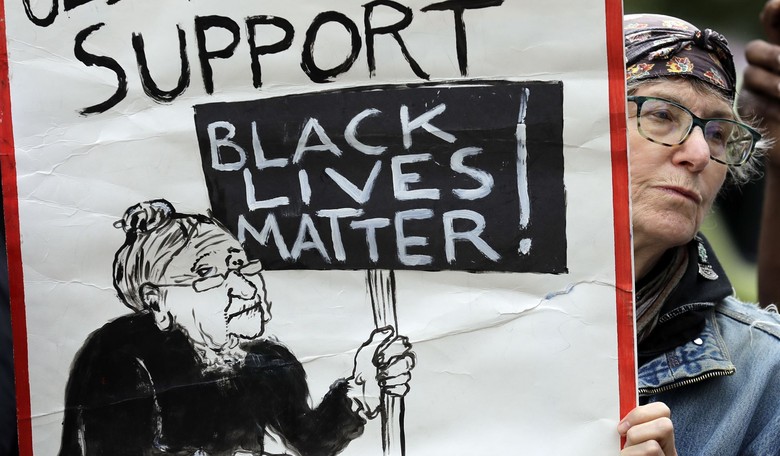 SUPPORT
BLACK
LIVES
MATTER!